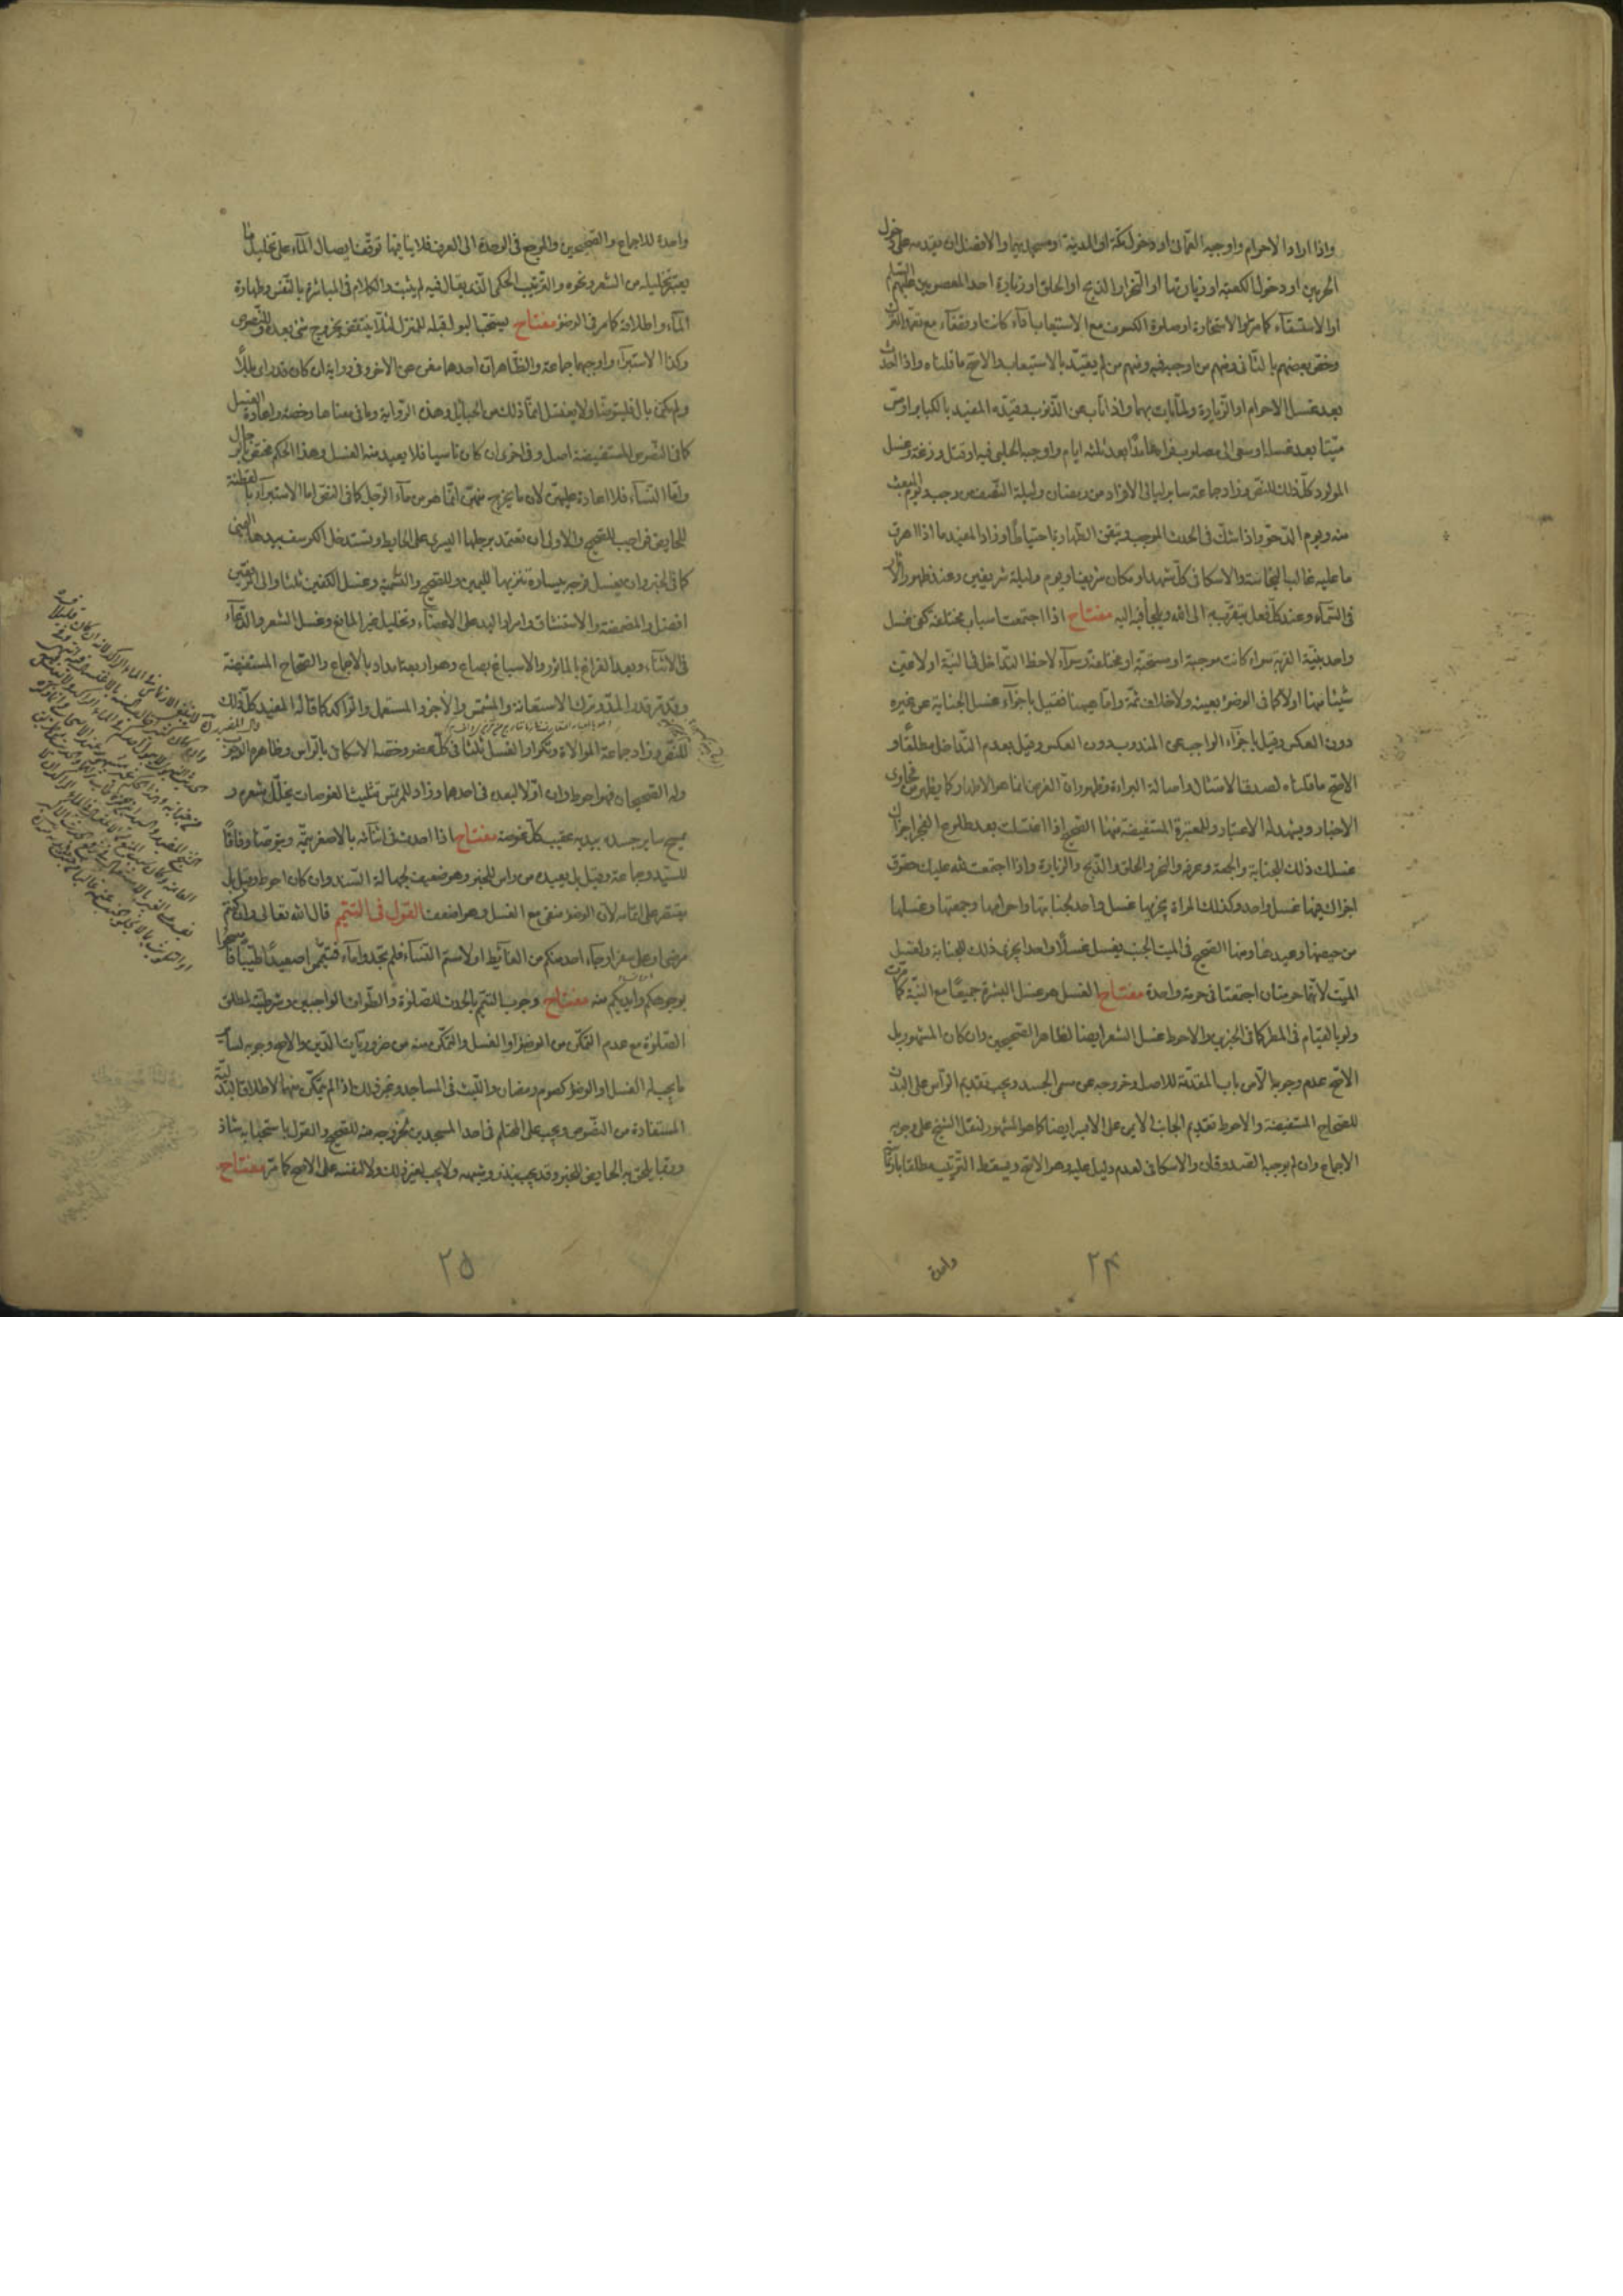 واذا اراد الاحرام واوجبه العمانى او دخول مكة او المدينة او مسجديهما والافضل ان يقدمه على دخول
الحرمين او دخول الكعبة او زيارتها او النحر او الذبح او الحلق او زيارة احد المعصومين عليهم السلم
او الاستسقاء كما مر او الاستخارة او صلوة الكسوف مع الاستيعاب اداء كانت او قضاء مع تعمد الترك
وخص بعضهم بالثانى ومنهم من اوجبه فيه ومنهم من لم يقيد بالاستيعاب والاصح ما قلناه واذا احدث
بعد غسل الاحرام او الزيارة ولما يات بهما واذا تاب عن الذنوب وقيده المفيد بالكباير او مس
ميتا بعد غسله او سعى الى مصلوب فراه عامدا بعد ثلثه ايام واوجبه الحلبى فيه او قتل وزغة وغسل
المولود كل ذلك للنص وزاد جماعة ساير ليالى الافراد من رمضان وليلة النصف من رجب ويوم المبعث
منه ويوم الدحو واذا شك فى الحدث الموجب وتيقن الطهارة احتياطا وزاد المفيد ما اذا اهرق
ما عليه غالب النجاسة والاسكافى كل مشهد او مكان شريف او يوم وليلة شريفين وعند ظهور الاثار
فى السماء وعند كل فعل يتقرب به الى الله ويلجأ فيه اليه مفتاح اذا اجتمعت اسباب مختلفة كفى غسل
واحد بنية القربة سواء كانت موجبة او مستحبة او مختلفة وسواء لاحظ التداخل فى النية او لا عين
شيئا منها او لا كما فى الوضوء بعينه ولا خلاف ثمة واما هيهنا فقيل باجزاء غسل الجنابة عن غيره
دون العكس وقيل باجزاء الواجب عن المندوب دون العكس وقيل بعدم التداخل مطلقا و
الاصح ما قلناه لصدق الامتثال واصالة البراءة وظهور ان الغرض انما هو الاطهار كما يظهر من فحاوى
الاخبار ويشهد له الاعتبار وللمعتبرة المستفيضة منها الصحيح اذا اغتسلت بعد طلوع الفجر اجزأك
غسلك ذلك للجنابة والجمعة وعرفه والنحر والحلق والذبح والزيارة واذا اجتمعت لله عليك حقوق
اجزاك عنها غسل واحد وكذلك المراة يجزيها غسل واحد لجنابتها واحرامها وجمعتها وغسلها
من حيضها وعيدها ومنها الصحيح فى الميت الجنب يغسل غسلا واحدا يجزى ذلك للجنابة ولغسل
الميت لانهما حرمتان اجتمعتا فى حرمة واحدة مفتاح الغسل هو غسل البشرة جميعا مع النية كما مرت
ولو بالقيام فى المطر كما فى الخبرين والاحوط غسل الشعر ايضا لظاهر الصحيحين وان كان المشهور بل
الاصح عدم وجوبه الا من باب المقدمة للاصل وخروجه عن مسمى الجسد ويجب تقديم الرأس على البدن
للصحاح المستفيضة والاحوط تقديم الجانب الايمن على الايسر ايضا كما هو المشهور لنقل الشيخ على وجوبه
الاجماع وان لم يوجبه الصدوقان والاسكافى لعدم دليل عليه وهو الاصح ويسقط الترتيب مطلقا بارتماسة
واحدة
٢٤
واحدة للاجماع والصحيحين والمرجع فى الوحدة الى العرف فلا ينافيها توقف ايصال الماء على تخليل ما
يعتبر تخليله من الشعر ونحوه والترتيب الحكمى الذى يقال فيه لم يثبت والكلام فى المباشرة بالنفس وطهارة
الماء واطلاقه كما مر فى الوضوء مفتاح يستحب البول قبله للمنزل لئلا ينتقض بخروج شئ بعده وللنصوص
وكذا الاستبراء واوجبهما جماعة والظاهر ان احدهما مغن عن الاخر وفى رواية ان كان قد راى بللا
ولم يكن بال فليتوضأ ولا يغتسل انما ذلك من الحبايل وهذه الرواية وما فى معناها رخصة واعادة الغسل
كما فى النصوص المستفيضة اصل وفى اخرى ان كان ناسيا فلا يعيد منه الغسل وهذا الحكم مختص بالرجال
واما النساء فلا اعادة عليهن لان ما يخرج منهن انما هو من ماء الرجل كما فى النص اما الاستبراء بالقطنة
للحايض فواجب للصحيح والاولى ان تعتمد برجلها اليسرى على الحايط وتستدخل الكرسف بيدها اليمنى
كما فى الخبر وان يغسل فرجه بيساره تنزيها لليمين وللصحيح والتسمية وغسل الكفين ثلثا والى المرفقين
افضل والمضمضة والاستنشاق وامرار اليد على الاعضاء وتخليل غير المانع وغسل الشعر والدعاء
فى الاثناء وبعد الفراغ بالماثور والاسباغ بصاع وهو اربعة امداد بالاجماع والصحاح المستفيضة
وقد مر قدر المد وترك الاستعانة والمشمس والاجن والمستعمل والراكد كما قاله المفيد كل ذلك
للنص وزاد جماعة الموالاة وتكرار الغسل ثلثا فى كل عضو وخصه الاسكافى بالرأس وظاهره الوجوب
وله الصحيحان فهو احوط وان اولا لبعد فى احدهما وزاد للمرتمس تثليث الغوصات يخلل شعره و
يمسح ساير جسده بيديه عقيب كل غوصة مفتاح اذا احدث فى اثنائه بالاصغر يتمه ويتوضأ وفاقا
للسيد وجماعة وقيل بل يعيده من راس للخبر وهو ضعيف لجهالة السند وان كان احوط وقيل بل
يقتصر على اتمامه لان الوضوء منفى مع الغسل وهو اضعف القول فى التيمم قال الله تعالى وان كنتم
مرضى او على سفر او جاء احد منكم من الغائط او لامستم النساء فلم تجدوا ماء فتيمموا صعيدا طيبا فامسحوا
بوجوهكم وايديكم منه مفتاح وجوب التيمم بالحدث للصلوة والطواف الواجبين وشرطيته لمطلق
الصلوة مع عدم التمكن من الوضوء او الغسل والتمكن منه من ضروريات الدين والاصح وجوبه لساير
ما يجب له الغسل او الوضوء كصوم رمضان واللبث فى المساجد ونحو ذلك اذا لم يتمكن منهما لاطلاق البدلية
المستفادة من النصوص ويجب على المحتلم فى احد المسجدين لخروجه منه للصحيح والقول باستحبابه شاذ
وربما يلحق به الحايض للخبر وقد يجب بنذر وشبهه ولا يجب لغير ذلك ولا لنفسه على الاصح كما مر مفتاح
٢٥